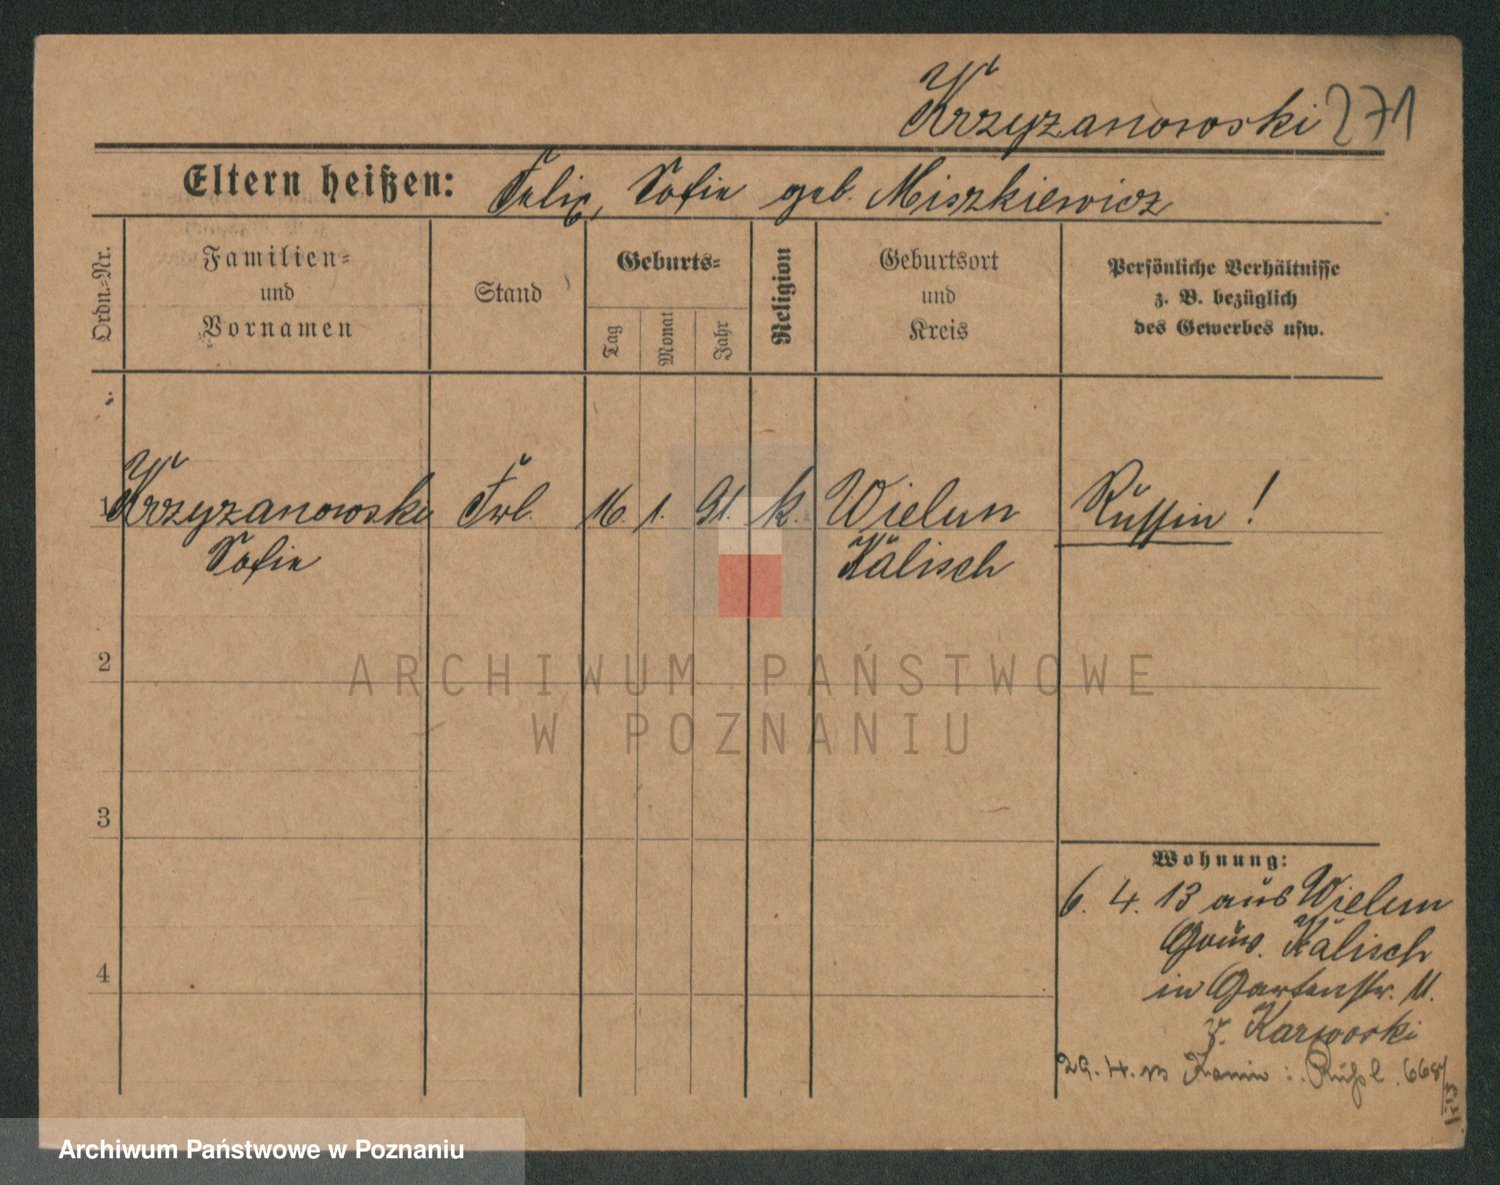 Krzyzanowski 271
Eltern heißen: Felix, Sofie geb. Miszkiewicz
Ordn.-Nr.
Familien-
und
Vornamen
Stand
Geburts-
Tag
Monat
Jahr
Religion
Geburtsort
und
Kreis
Persönliche Verhältnisse
z. B. bezüglich
des Gewerbes usw.
1 Krzyzanowski Frl. 16. 1. 91. k. Wielun Russin!
Sofie Kalisch
ARCHIWUM PAŃSTWOWE
W POZNANIU
2
3
4
Wohnung:
6. 4. 13 aus Wielun
Gouv. Kalisch
in Gartenstr. 11.
z. Karworski
29. 4. 13 i. Rußl. 668/13
Archiwum Państwowe w Poznaniu